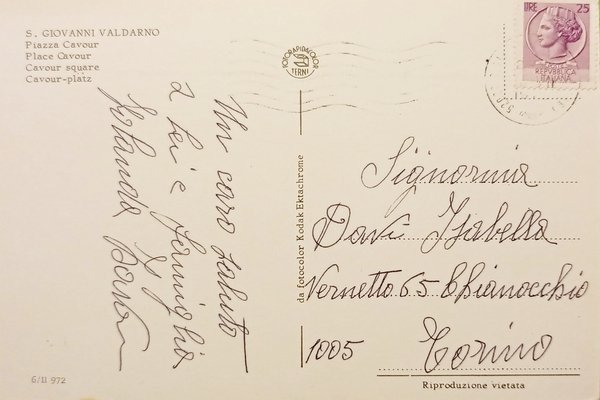 S. GIOVANNI VALDARNO
Piazza Cavour
Place Cavour
Cavour square
Cavour-platz
FOTORAPIDACOLOR
TERNI
LIRE 25
REPVBBLICA
ITALIANA
Un caro saluto
a Lei e famiglia
Iolanda
da fotocolor Kodak Ektachrome
Signorina
Davì Isabella
Vernetto 65 Chianocchio
1005 Torino
6/II 972
Riproduzione vietata